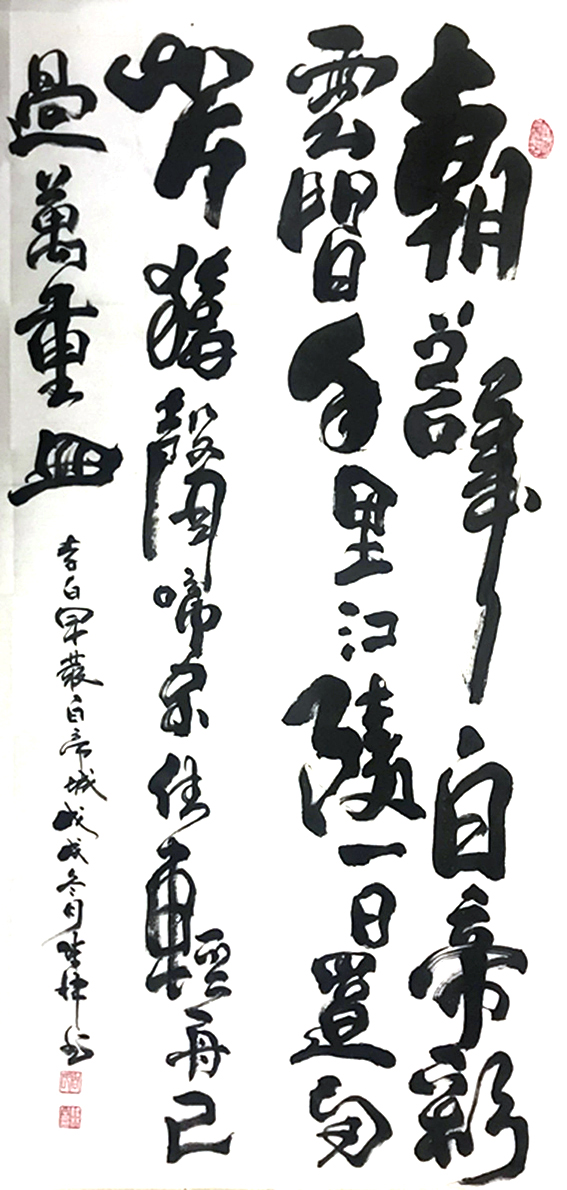 朝辭白帝彩
雲間千里江陵一日還兩
岸猿聲啼不住輕舟已
過萬重山
李白早發白帝城戊戌冬月書